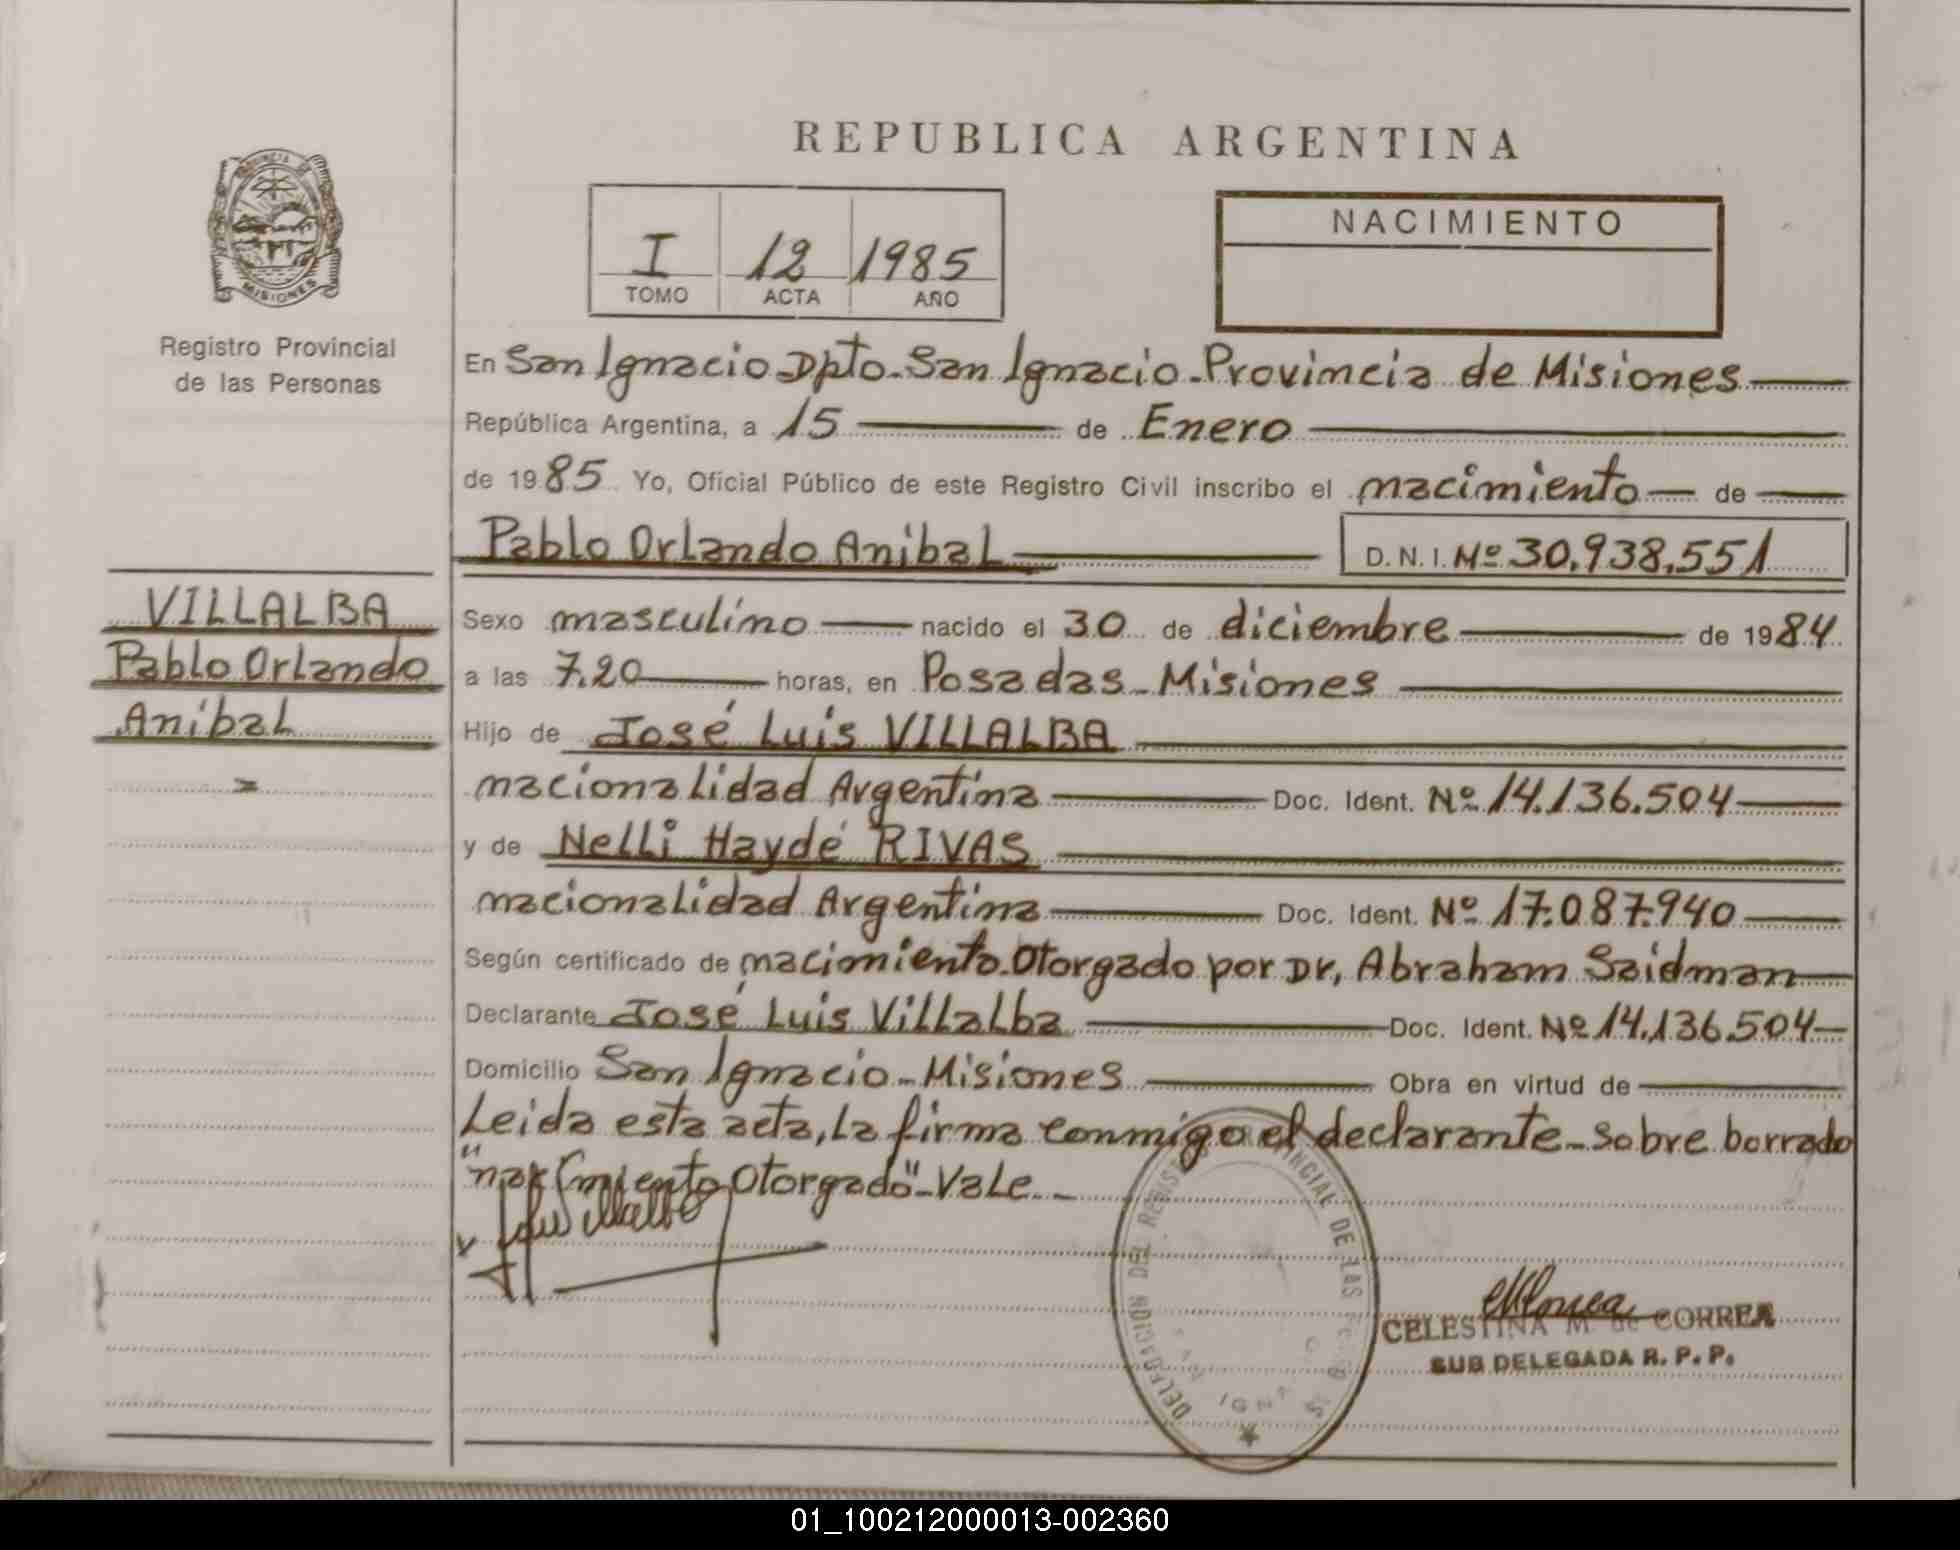 REPUBLICA ARGENTINA
PROVINCIA DE
MISIONES
Registro Provincial
de las Personas
I 12 1985
TOMO ACTA AÑO
NACIMIENTO
En San Ignacio Dpto. San Ignacio - Provincia de Misiones
República Argentina, a 15 de Enero
de 1985 Yo, Oficial Público de este Registro Civil inscribo el nacimiento de
Pablo Orlando Anibal D.N.I. Nº 30.938.551
VILLALBA
Pablo Orlando
Anibal
Sexo masculino nacido el 30 de diciembre de 1984
a las 7.20 horas, en Posadas - Misiones
Hijo de José Luis VILLALBA
nacionalidad Argentina Doc. Ident. Nº 14.136.504
y de Nelli Haydé RIVAS
nacionalidad Argentina Doc. Ident. Nº 17.087.940
Según certificado de nacimiento Otorgado por Dr, Abraham Saidman
Declarante José Luis Villalba Doc. Ident. Nº 14.136.504
Domicilio San Ignacio - Misiones Obra en virtud de
Leida esta acta, la firma conmigo el declarante - sobre borrado
"nacimiento Otorgado" - Vale
DELEGACION DEL REGISTRO PROVINCIAL DE LAS
CELESTINA M. de CORREA
SUB DELEGADA R. P. P.
01_100212000013-002360